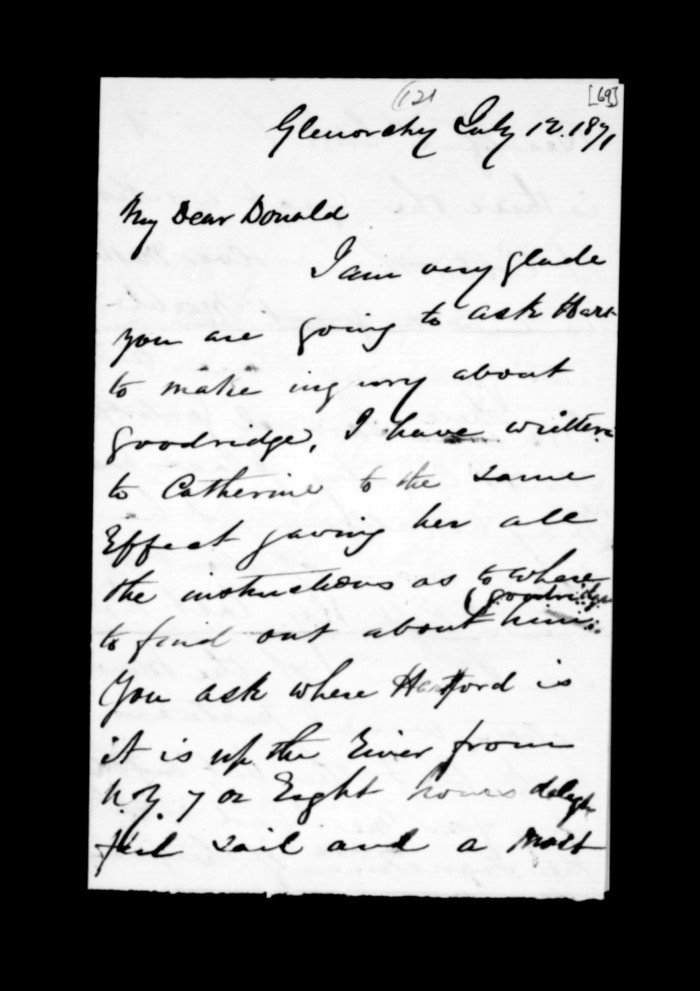 (121
[69]
Glenorchy July 12. 1871
My Dear Donald
I am very glade
you are going to ask Hart
to make inqury about
Goodridge, I have written
to Catherine to the same
Effect gaving her all
the instructions as to where
(Goodridge
to find out about him.
You ask where Hartford is
it is up the River from
N.Y. 7 or Eight hours deligh
full sail and a most